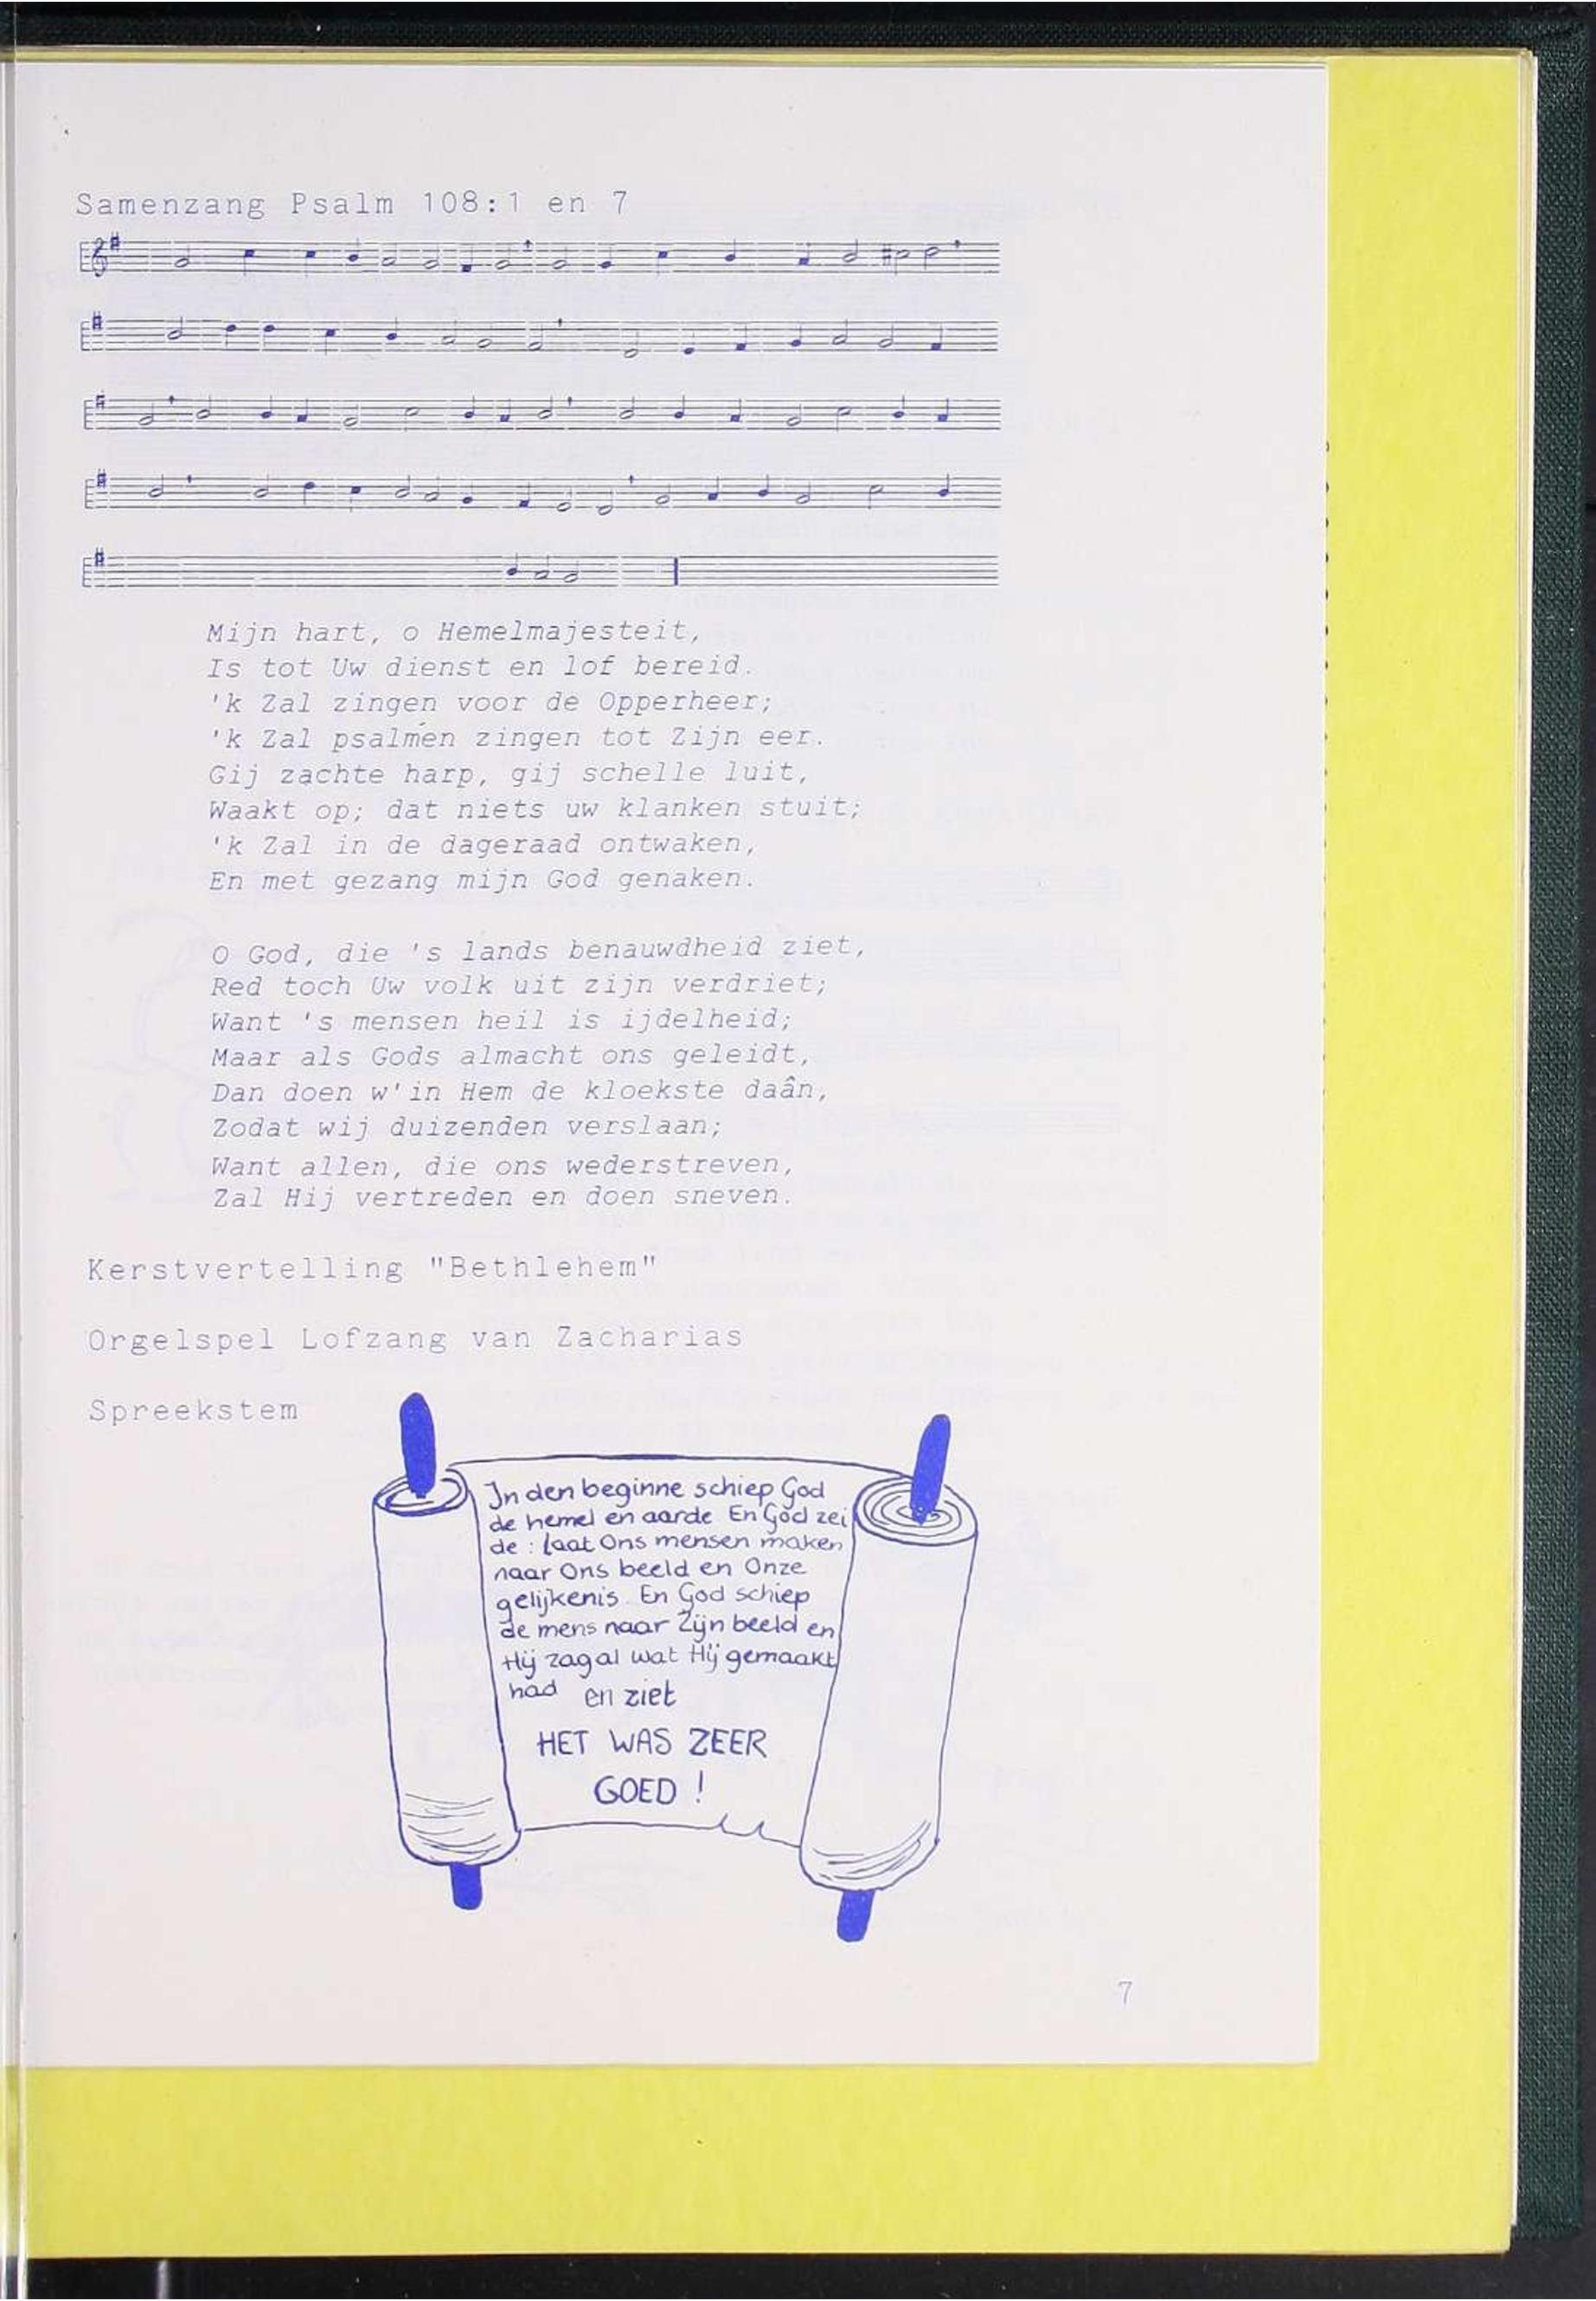 Samenzang Psalm 108:1 en 7
Mijn hart, o Hemelmajesteit,
Is tot Uw dienst en lof bereid.
'k Zal zingen voor de Opperheer;
'k Zal psalmen zingen tot Zijn eer.
Gij zachte harp, gij schelle luit,
Waakt op; dat niets uw klanken stuit;
'k Zal in de dageraad ontwaken,
En met gezang mijn God genaken.
O God, die 's lands benauwdheid ziet,
Red toch Uw volk uit zijn verdriet;
Want 's mensen heil is ijdelheid;
Maar als Gods almacht ons geleidt,
Dan doen w'in Hem de kloekste daân,
Zodat wij duizenden verslaan;
Want allen, die ons wederstreven,
Zal Hij vertreden en doen sneven.
Kerstvertelling "Bethlehem"
Orgelspel Lofzang van Zacharias
Spreekstem
In den beginne schiep God
de hemel en aarde En God zei
de : Laat Ons mensen maken
naar Ons beeld en Onze
gelijkenis. En God schiep
de mens naar Zijn beeld en
Hij zag al wat Hij gemaakt
had en ziet
HET WAS ZEER
GOED !
7